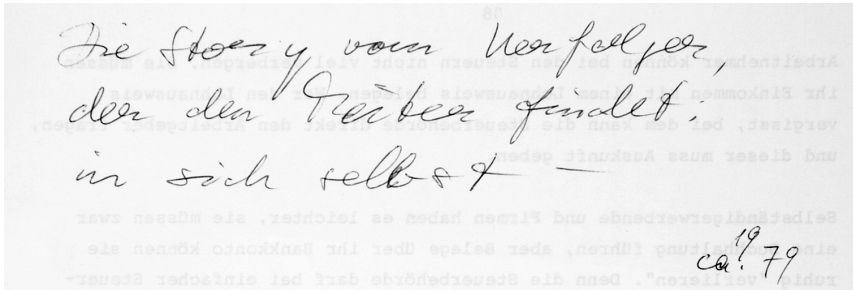 Die Story vom Verfolger,
der den Täter findet:
in sich selbst —
ca. 1979